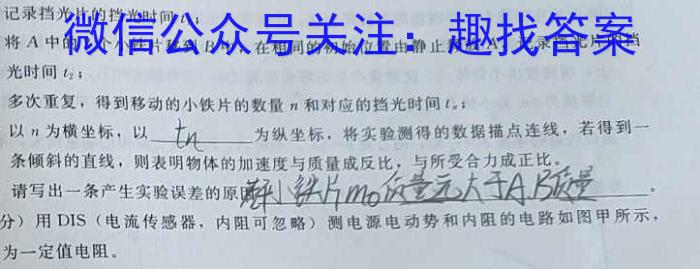 记录挡光片的挡光时间 t₁；
微信公众号关注：趣找答案
将 A 中的一个小铁片 在相同的初始位置由静止 记录挡光片 挡
光时间 t₂；
多次重复，得到移动的小铁片的数量 n 和对应的挡光时间 tₙ；
以 n 为横坐标，以 tn 为纵坐标，将实验测得的数据描点连线，若得到一
条倾斜的直线，则表明物体的加速度与质量成反比，与所受合力成正比。
请写出一条产生实验误差的原因 小铁片m₀质量元大于A.B质量 。
分）用 DIS（电流传感器，内阻可忽略）测电源电动势和内阻的电路如图甲所示，
为一定值电阻。